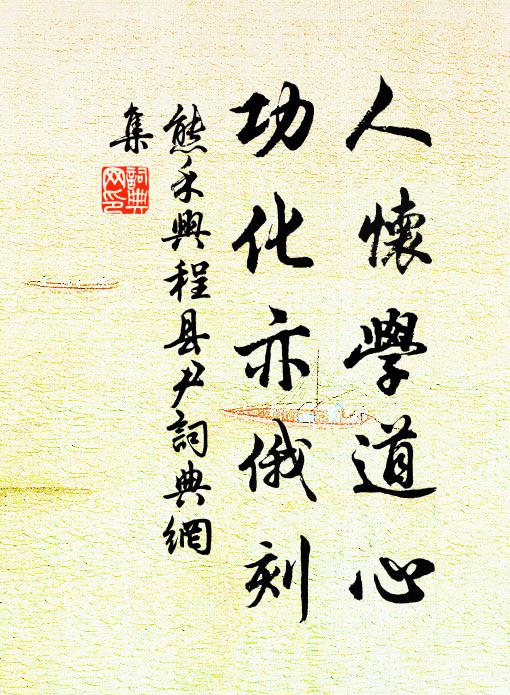 人懷學道心
功化亦俄刻
熊禾興程县尹詞典網
集
詞典
网印